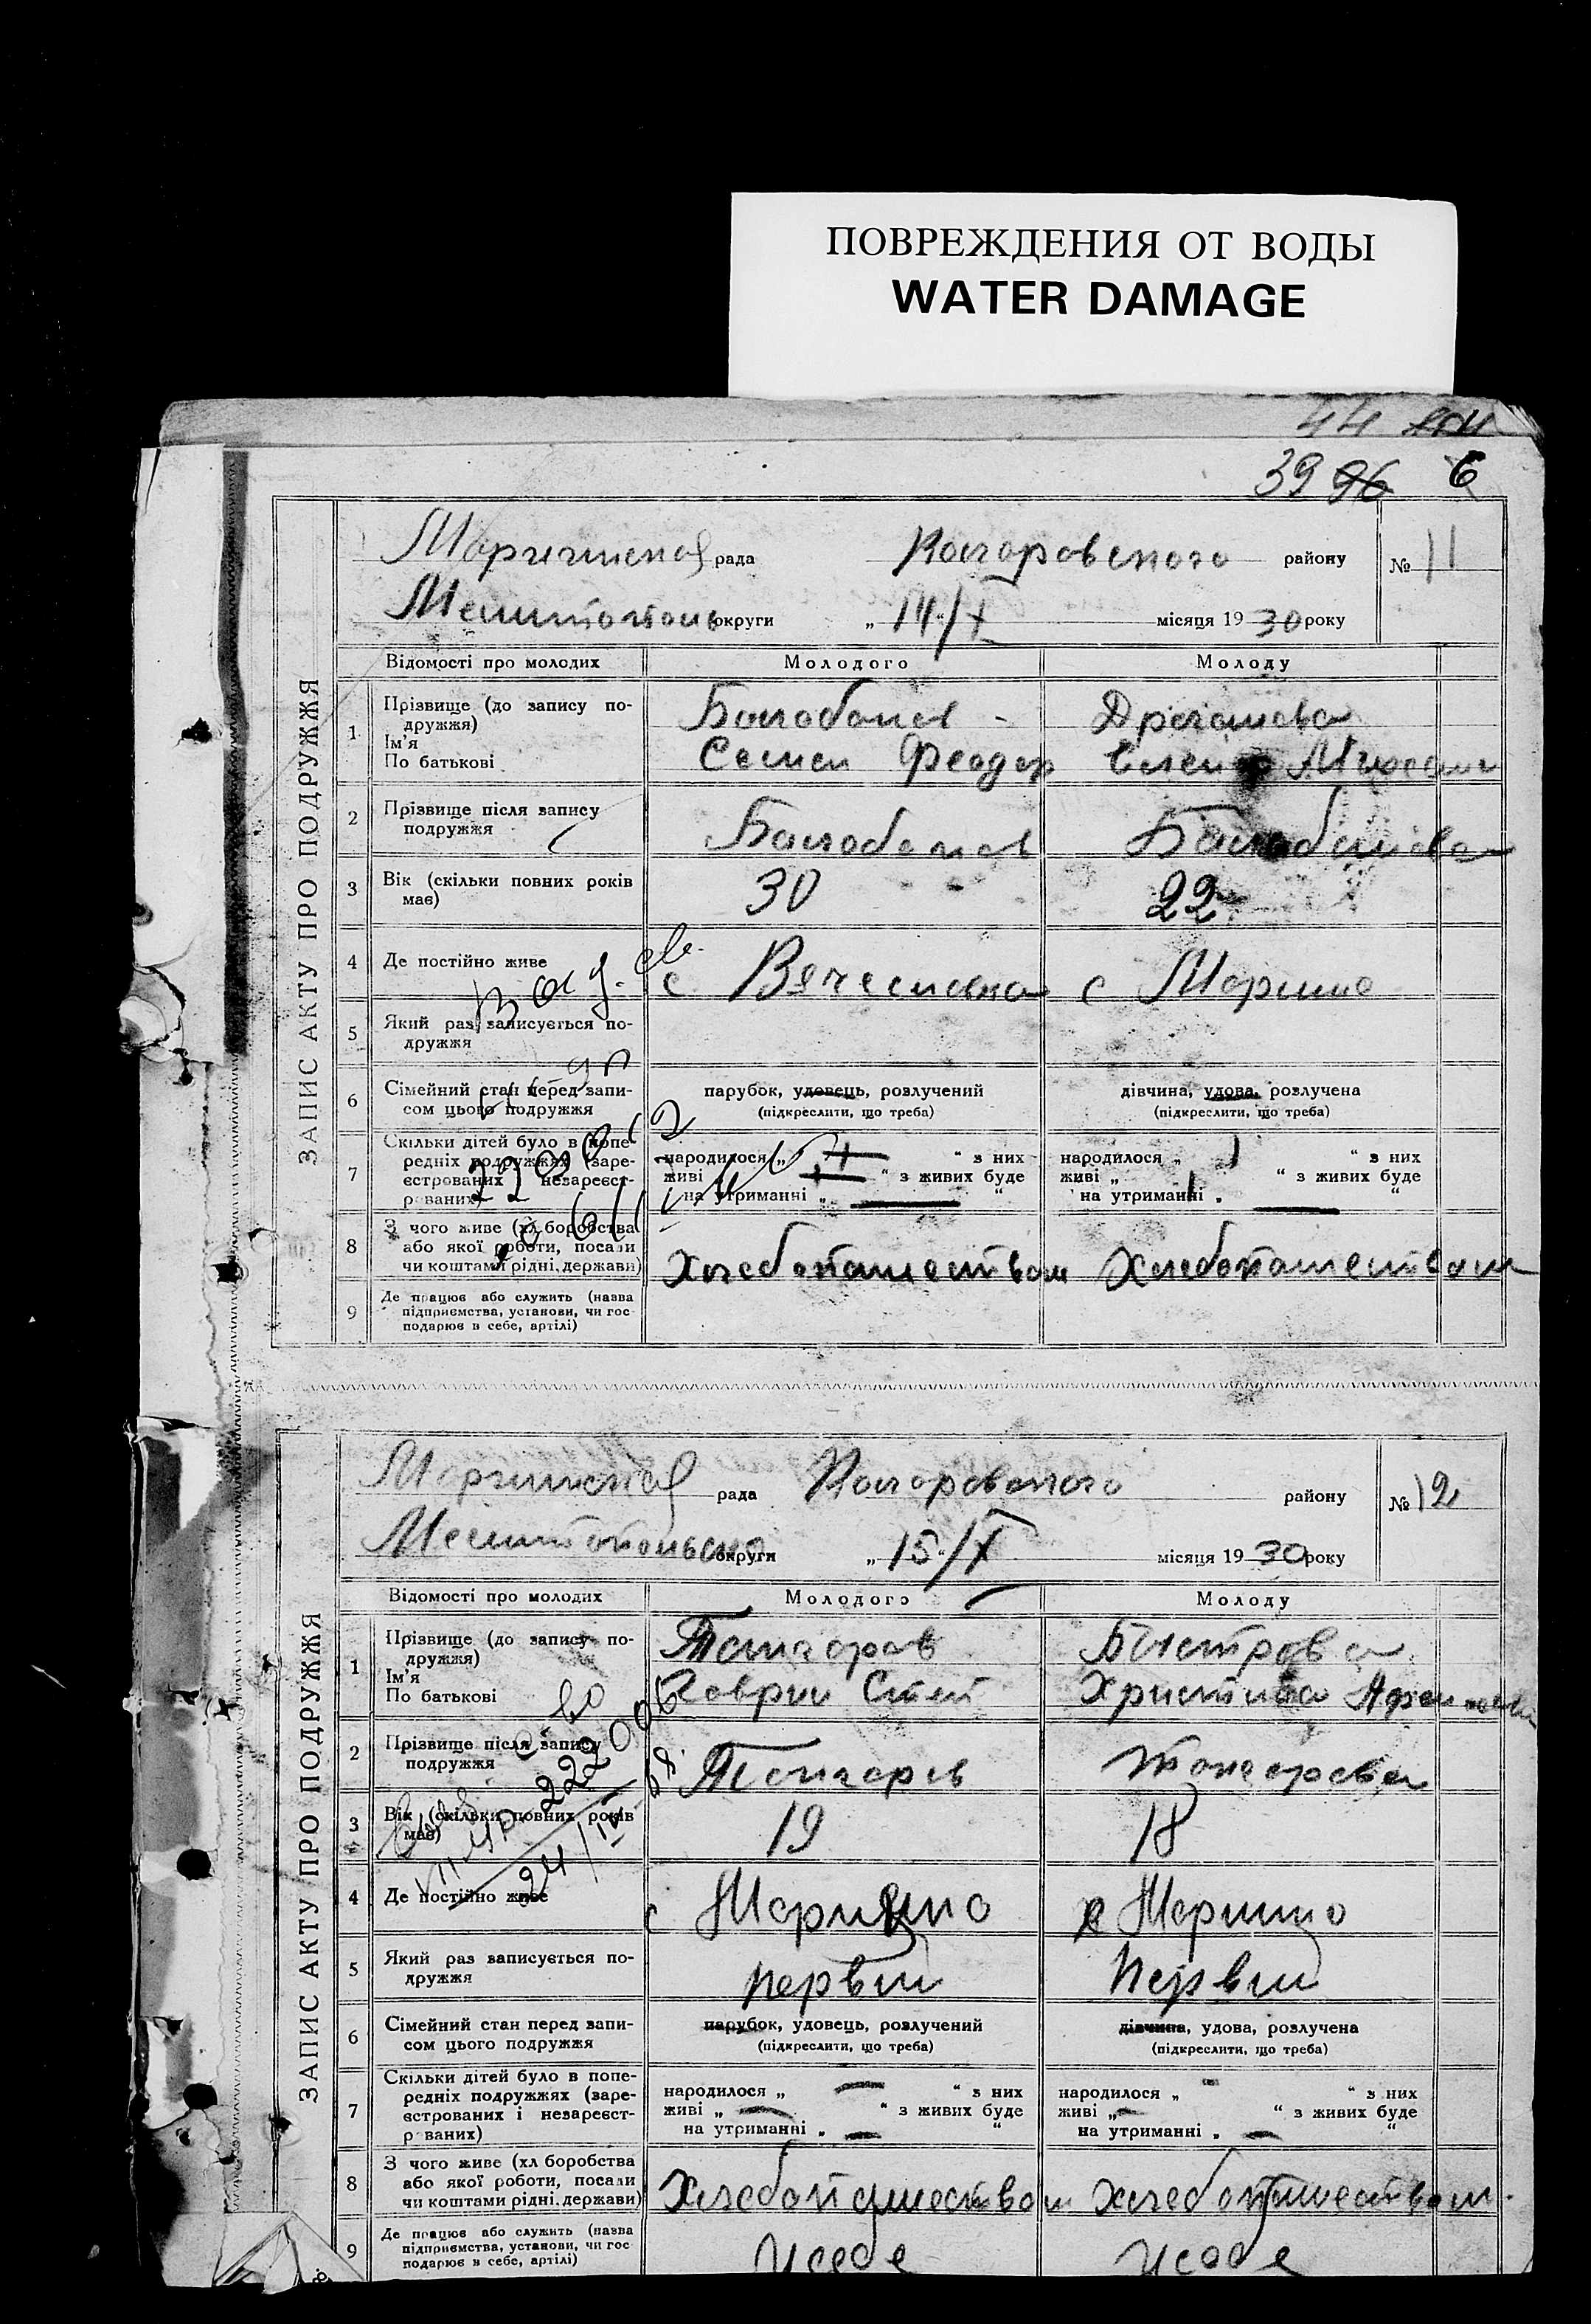 ПОВРЕЖДЕНИЯ ОТ ВОДЫ
WATER DAMAGE
44
39 96 6
ЗАПИС АКТУ ПРО ПОДРУЖЖЯ
рада района району № 11
округи „ 14/X місяця 1930 року
Відомості про молодих Молодого Молоду
1 Прізвище (до запису по-
дружжя)
Ім'я
По батькові
Балабанов - Драганова
Семен Феодор Михайл
2 Прізвище після запису
подружжя
Балабанов Балабанова
3 Вік (скільки повних років
має)
30 22
4 Де постійно живе
с Вячеславка с Марино
5 Який раз записується по-
дружжя
6 Сімейний стан перед запи-
сом цього подружжя
парубок, удовець, розлучений
(підкреслити, що треба)
дівчина, удова, розлучена
(підкреслити, що треба)
7 Скільки дітей було в попе-
редніх подружжях (заре-
єстрованих і незареєст-
рованих)
народилося „ “ з них
живі “ з живих буде
на утриманні „ “
народилося „ 1 “ з них
живі „ “ з живих буде
на утриманні „ “
8 З чого живе (хл боробства
або якої роботи, посади
чи коштами рідні, держави)
Хлебопашеством Хлебопашеством
9 Де працює або служить (назва
підприємства, установи, чи гос-
подарює в себе, артілі)
ЗАПИС АКТУ ПРО ПОДРУЖЖЯ
рада району № 12
округи „ 15/X місяця 1930 року
Відомості про молодих Молодого Молоду
1 Прізвище (до запису по-
дружжя)
Ім'я
По батькові
Быстрова
Гаврил Степ Христина
2 Прізвище після запису
подружжя
3 Вік (скільки повних років
має)
19 18
24/IV
4 Де постійно живе
с Марино с Марино
5 Який раз записується по-
дружжя
первый первый
6 Сімейний стан перед запи-
сом цього подружжя
парубок, удовець, розлучений
(підкреслити, що треба)
дівчина, удова, розлучена
(підкреслити, що треба)
7 Скільки дітей було в попе-
редніх подружжях (заре-
єстрованих і незареєст-
р ваних)
народилося „ — “ з них
живі „ — “ з живих буде
на утриманні „ — “
народилося „ - “ з них
живі „ — “ з живих буде
на утриманні „ — “
8 З чого живе (хл боробства
або якої роботи, посади
чи коштами рідні, держави)
Хлебопашеством Хлебопашеством.
9 Де працює або служить (назва
підприємства, установи, чи гос-
подарює в себе, артілі)
У себе У себе